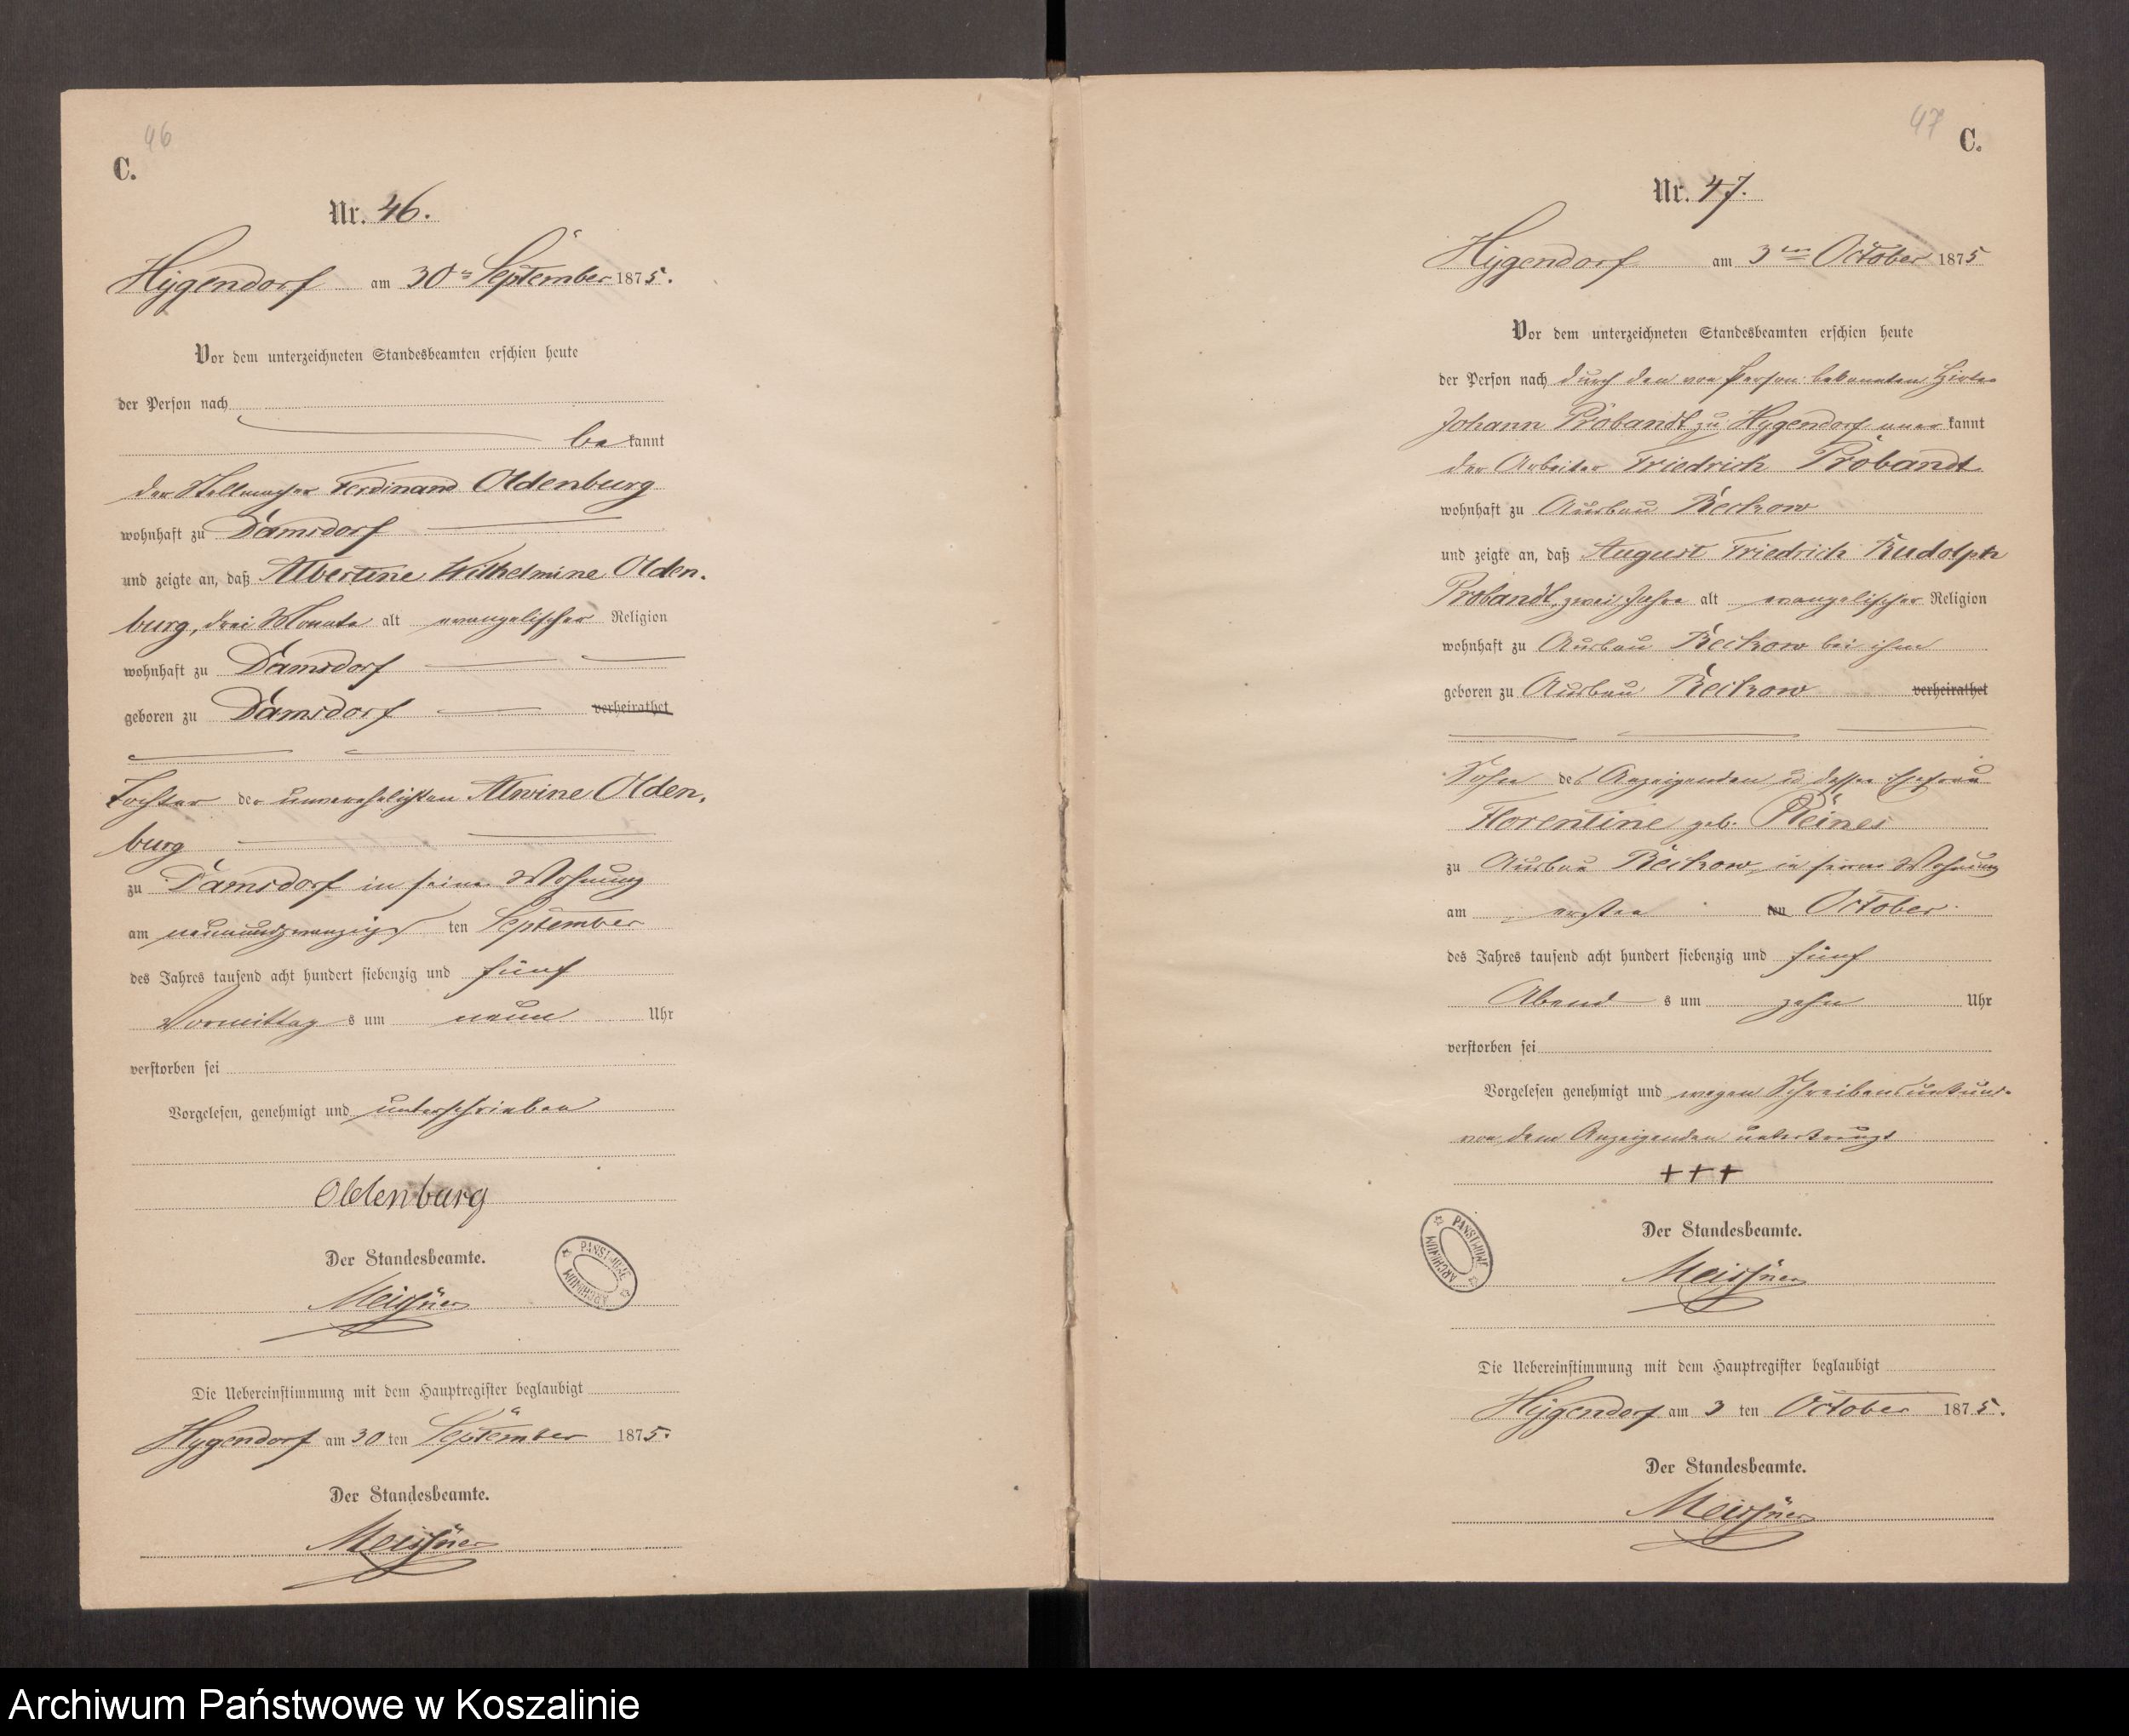 46
C.
Nr. 46.
Hygendorf am 30ten September 1875.
Vor dem unterzeichneten Standesbeamten erschien heute
der Person nach
be kannt
der Stellmacher Ferdinand Oldenburg
wohnhaft zu Damsdorf
und zeigte an, daß Albertine Wilhelmine Olden-
burg, drei Monate alt evangelischer Religion
wohnhaft zu Damsdorf
geboren zu Damsdorf verheirathet
Tochter der unverehelichten Alwine Olden-
burg
zu Damsdorf in seiner Wohnung
am neunundzwanzigs ten September
des Jahres tausend acht hundert siebenzig und fünf
Vormittag s um neun Uhr
verstorben sei
Vorgelesen, genehmigt und unterschrieben
Oldenburg
Der Standesbeamte.
Meissner
PAŃSTWOWE ARCHIWUM
Die Uebereinstimmung mit dem Hauptregister beglaubigt
Hygendorf am 30 ten September 1875.
Der Standesbeamte.
Meissner
47
C.
Nr. 47.
Hygendorf am 3ten October 1875
Vor dem unterzeichneten Standesbeamten erschien heute
der Person nach durch den von Person bekannten Hirten
Johann Probandt zu Hygendorf aner kannt
der Arbeiter Friedrich Probandt
wohnhaft zu Ausbau Reckow
und zeigte an, daß August Friedrich Rudolph
Probandt, zwei Jahre alt evangelischer Religion
wohnhaft zu Ausbau Reckow bei ihm
geboren zu Ausbau Reckow verheirathet
Sohn des Anzeigenden u dessen Ehefrau
Florentine geb.
zu Ausbau Reckow in seiner Wohnung
am ersten ten October
des Jahres tausend acht hundert siebenzig und fünf
Abend s um zehn Uhr
verstorben sei
Vorgelesen genehmigt und wegen Schreibensunkund-
von dem Anzeigenden unterkreuzt
+++
Der Standesbeamte.
Meissner
PAŃSTWOWE ARCHIWUM
Die Uebereinstimmung mit dem Hauptregister beglaubigt
Hygendorf am 3 ten October 1875.
Der Standesbeamte.
Meissner
Archiwum Państwowe w Koszalinie